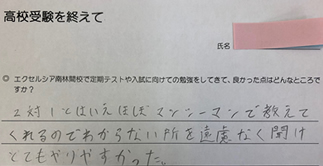 高校受験を終えて
氏名
◎ エクセルシア南林間校で定期テストや入試に向けての勉強をしてきて、良かった点はどんなところで
すか？
2対1とはいえほぼマンツーマンで教えて
くれるのでわからない所を遠慮なく聞け
とてもやりやすかった。